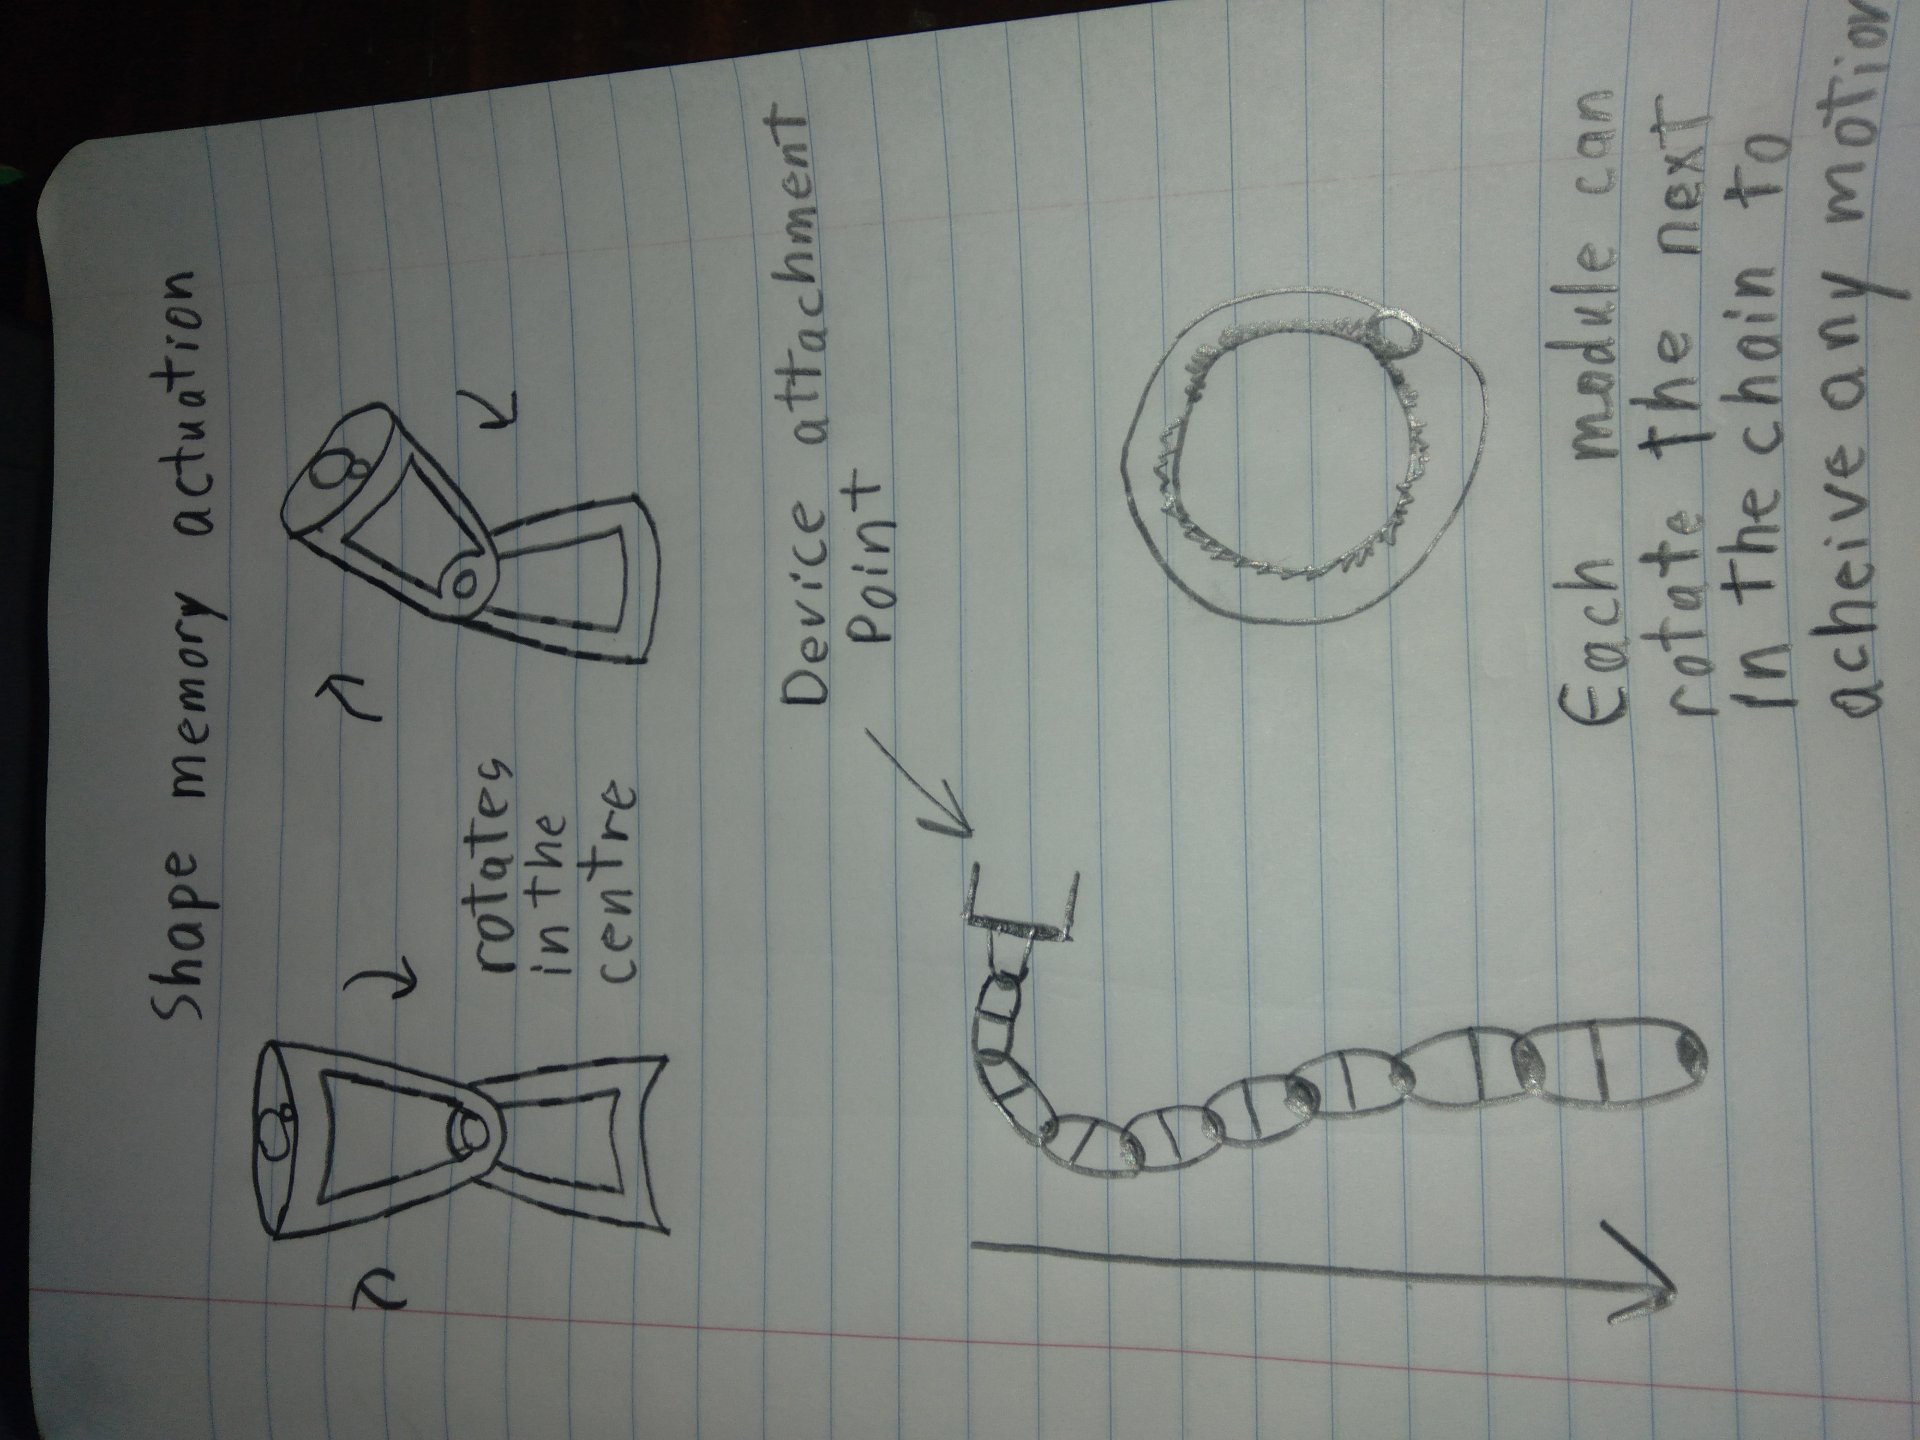 Shape memory actuation
rotates
in the
centre
Device attachment
Point
Each module can
rotate the next
in the chain to
acheive any motion